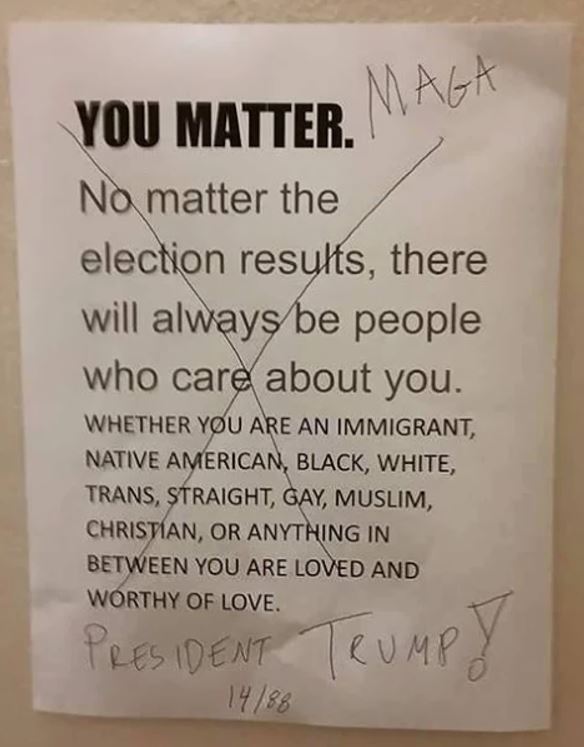 MAGA
YOU MATTER.
No matter the
election results, there
will always be people
who care about you.
WHETHER YOU ARE AN IMMIGRANT,
NATIVE AMERICAN, BLACK, WHITE,
TRANS, STRAIGHT, GAY, MUSLIM,
CHRISTIAN, OR ANYTHING IN
BETWEEN YOU ARE LOVED AND
WORTHY OF LOVE.
PRESIDENT TRUMP!
14/88